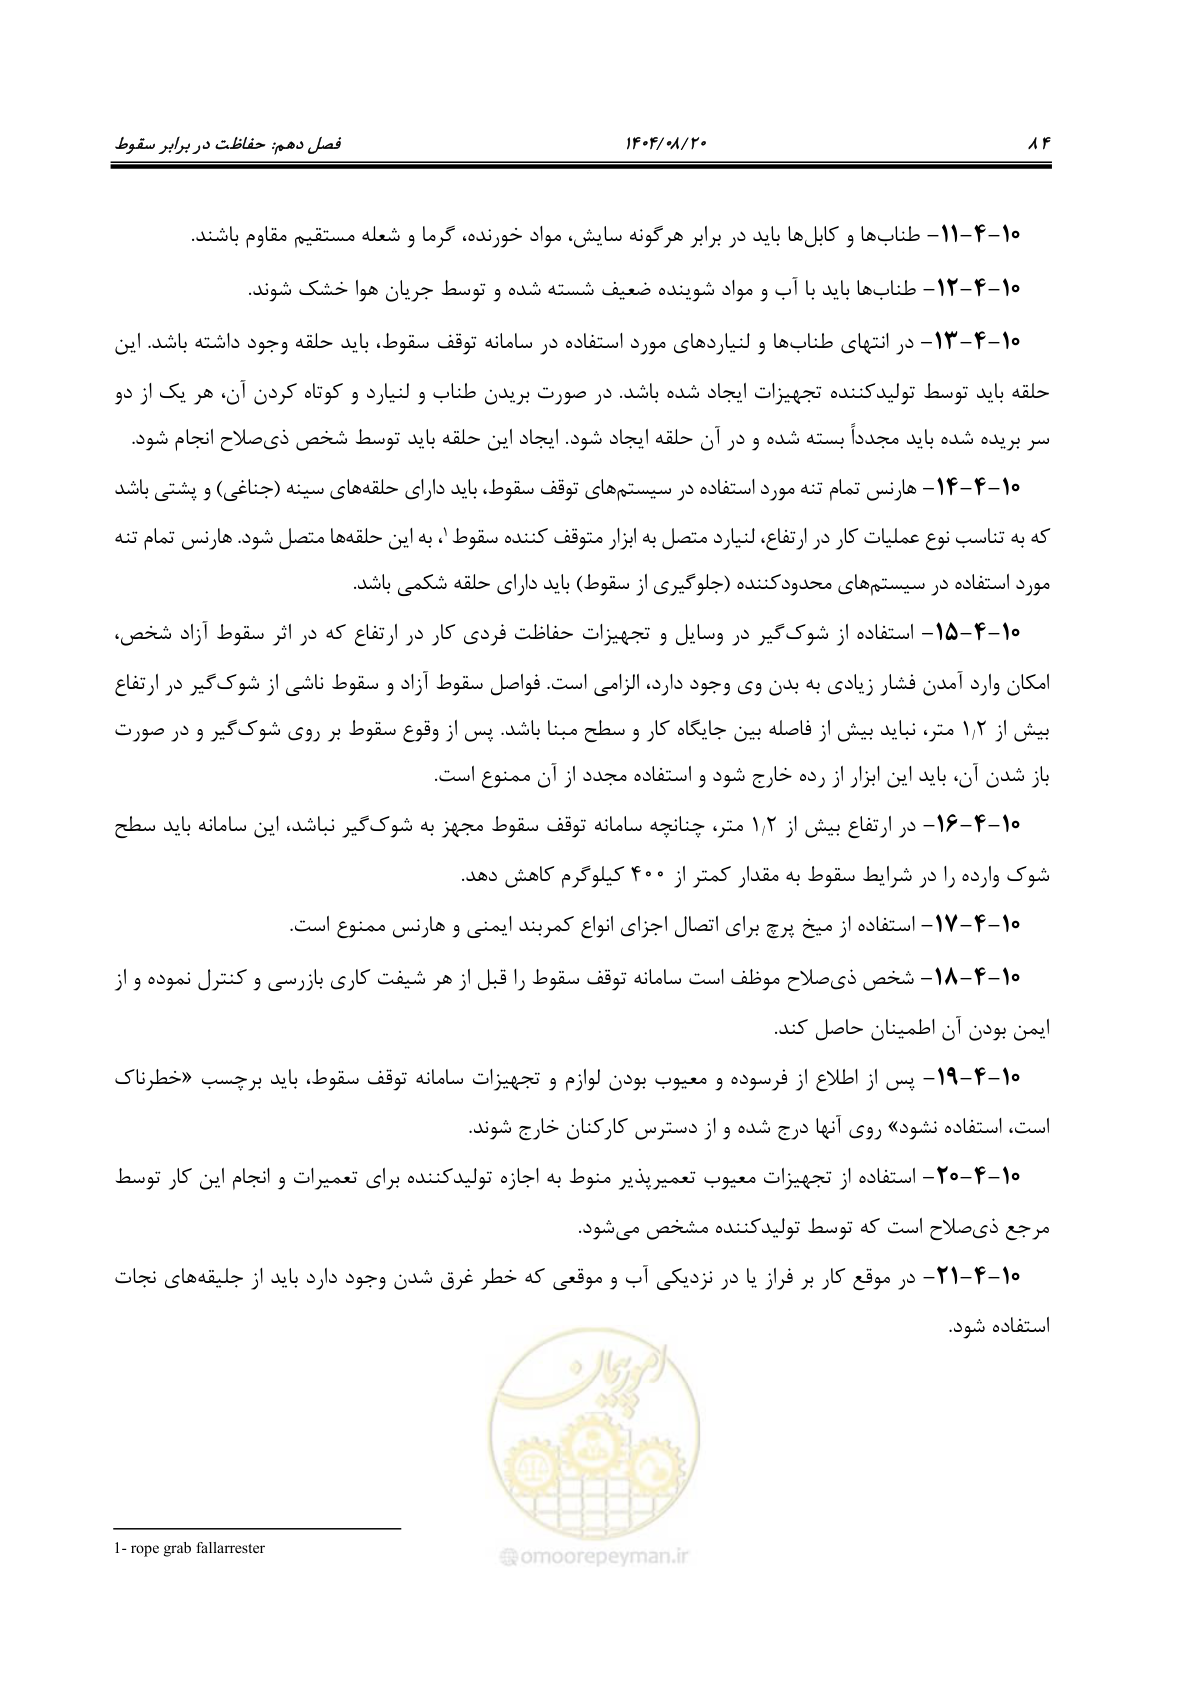 ۸۴ ۱۴۰۴/۰۸/۲۰ فصل دهم: حفاظت در برابر سقوط
۱۰-۴-۱۱- طناب‌ها و کابل‌ها باید در برابر هرگونه سایش، مواد خورنده، گرما و شعله مستقیم مقاوم باشند.
۱۰-۴-۱۲- طناب‌ها باید با آب و مواد شوینده ضعیف شسته شده و توسط جریان هوا خشک شوند.
۱۰-۴-۱۳- در انتهای طناب‌ها و لنیاردهای مورد استفاده در سامانه توقف سقوط، باید حلقه وجود داشته باشد. این
حلقه باید توسط تولیدکننده تجهیزات ایجاد شده باشد. در صورت بریدن طناب و لنیارد و کوتاه کردن آن، هر یک از دو
سر بریده شده باید مجدداً بسته شده و در آن حلقه ایجاد شود. ایجاد این حلقه باید توسط شخص ذی‌صلاح انجام شود.
۱۰-۴-۱۴- هارنس تمام تنه مورد استفاده در سیستم‌های توقف سقوط، باید دارای حلقه‌های سینه (جناغی) و پشتی باشد
که به تناسب نوع عملیات کار در ارتفاع، لنیارد متصل به ابزار متوقف کننده سقوط۱، به این حلقه‌ها متصل شود. هارنس تمام تنه
مورد استفاده در سیستم‌های محدودکننده (جلوگیری از سقوط) باید دارای حلقه شکمی باشد.
۱۰-۴-۱۵- استفاده از شوک‌گیر در وسایل و تجهیزات حفاظت فردی کار در ارتفاع که در اثر سقوط آزاد شخص،
امکان وارد آمدن فشار زیادی به بدن وی وجود دارد، الزامی است. فواصل سقوط آزاد و سقوط ناشی از شوک‌گیر در ارتفاع
بیش از ۱٫۲ متر، نباید بیش از فاصله بین جایگاه کار و سطح مبنا باشد. پس از وقوع سقوط بر روی شوک‌گیر و در صورت
باز شدن آن، باید این ابزار از رده خارج شود و استفاده مجدد از آن ممنوع است.
۱۰-۴-۱۶- در ارتفاع بیش از ۱٫۲ متر، چنانچه سامانه توقف سقوط مجهز به شوک‌گیر نباشد، این سامانه باید سطح
شوک وارده را در شرایط سقوط به مقدار کمتر از ۴۰۰ کیلوگرم کاهش دهد.
۱۰-۴-۱۷- استفاده از میخ پرچ برای اتصال اجزای انواع کمربند ایمنی و هارنس ممنوع است.
۱۰-۴-۱۸- شخص ذی‌صلاح موظف است سامانه توقف سقوط را قبل از هر شیفت کاری بازرسی و کنترل نموده و از
ایمن بودن آن اطمینان حاصل کند.
۱۰-۴-۱۹- پس از اطلاع از فرسوده و معیوب بودن لوازم و تجهیزات سامانه توقف سقوط، باید برچسب «خطرناک
است، استفاده نشود» روی آنها درج شده و از دسترس کارکنان خارج شوند.
۱۰-۴-۲۰- استفاده از تجهیزات معیوب تعمیرپذیر منوط به اجازه تولیدکننده برای تعمیرات و انجام این کار توسط
مرجع ذی‌صلاح است که توسط تولیدکننده مشخص می‌شود.
۱۰-۴-۲۱- در موقع کار بر فراز یا در نزدیکی آب و موقعی که خطر غرق شدن وجود دارد باید از جلیقه‌های نجات
استفاده شود.
امور پیمان
1- rope grab fallarrester
omoorepeyman.ir